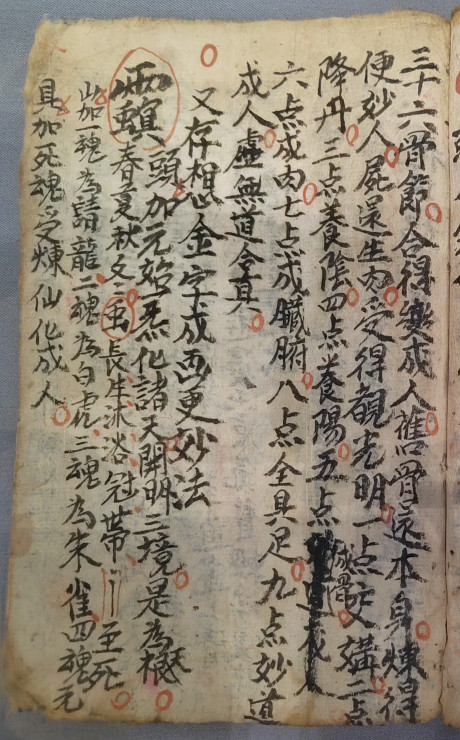 三十六骨節合得變成人舊骨還本身煉得
便妙人屍還生肉受得觀光明一点定父媾二点
降丹三点養陰四点養陽五点成骨
六点成肉七点成臟腑八点全具足九点妙道
成人虛無道合真
又存想金字成西更妙法
頭加元始一炁化諸天開明三境是為概
春夏秋冬三 長生沐浴冠帶 至死
此加一魂為請龍二魂為白虎三魂為朱雀四魂元
具加死魂受煉仙化成人